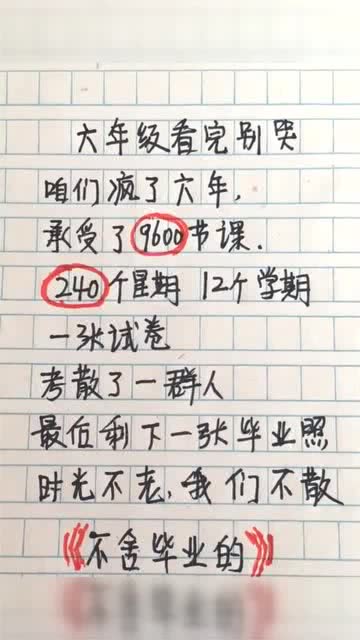 六年级看完别哭
咱们疯了六年,
承受了9600节课.
240个星期 12个学期
一张试卷
考散了一群人
最后剩下一张毕业照
时光不老,我们不散
《不舍毕业的》